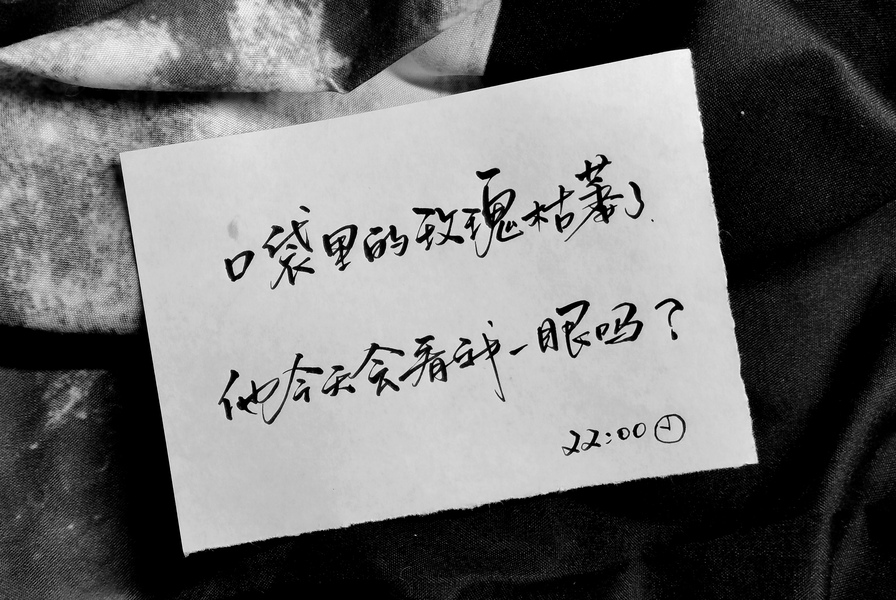 口袋里的玫瑰枯萎了.
他今天会看我一眼吗?
22:00